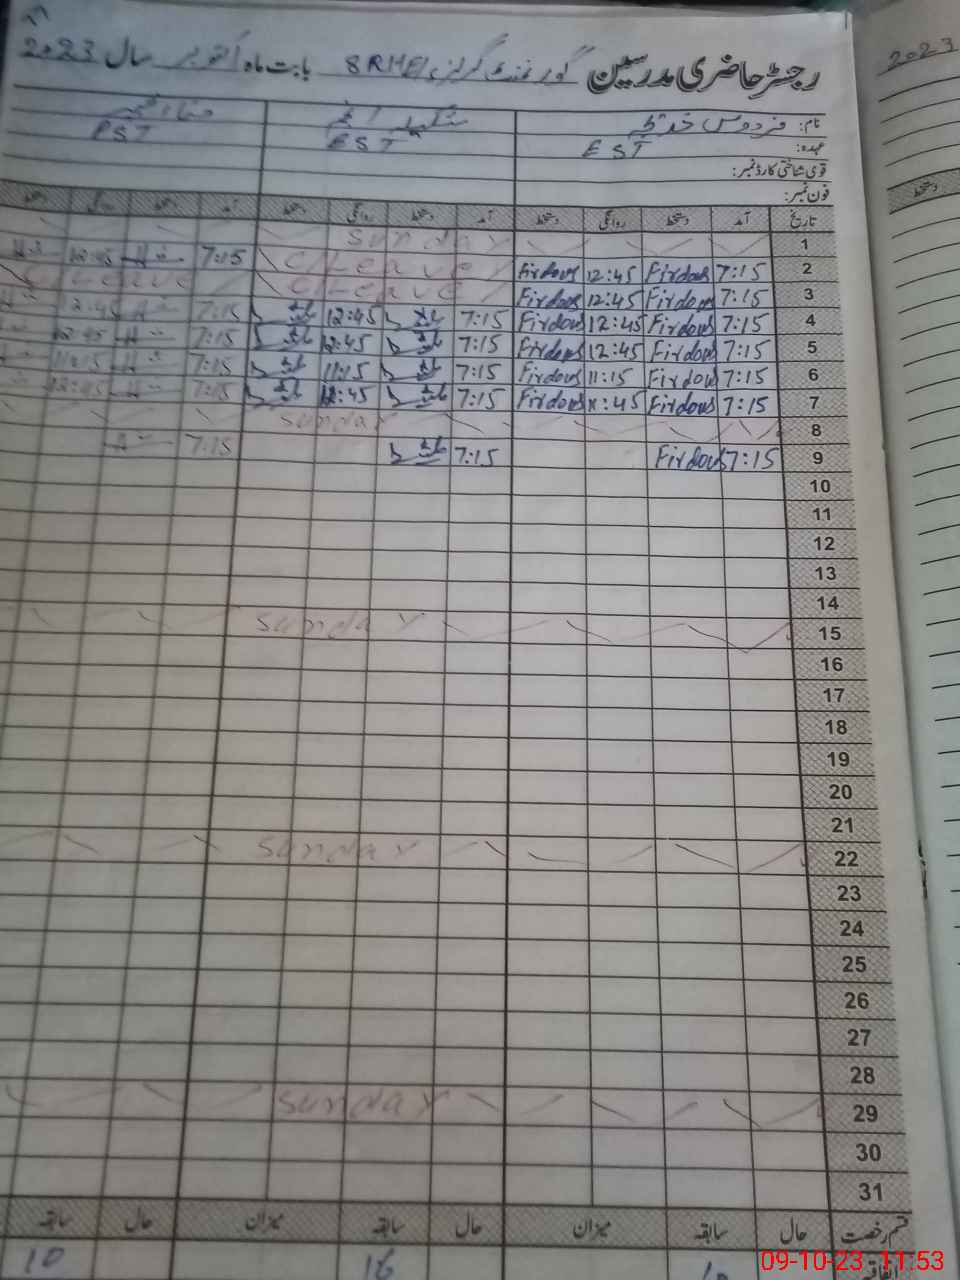 رجسٹر حاضری مدرسین گورنمنٹ گرلز 8RHEI بابت ماہ اکتوبر سال 2023
2023
نام: فردوس
عہدہ: EST EST PST
قومی شناختی کارڈ نمبر:
فون نمبر:
تاریخ آمد دستخط روانگی دستخط آمد دستخط روانگی دستخط آمد دستخط روانگی دستخط
دستخط
1 Sunday
2 7:15 Firdous 12:45 Firdous C/Leave 7:15 12:45
3 7:15 Firdous 12:45 Firdous C/Leave C/Leave
4 7:15 Firdous 12:45 Firdous 7:15 12:45 7:15 12:45
5 7:15 Firdous 12:45 Firdous 7:15 12:45 7:15 12:45
6 7:15 Firdous 11:15 Firdous 7:15 11:15 7:15 11:15
7 7:15 Firdous :45 Firdous 7:15 :45 7:15 12:45
8 Sunday
9 7:15 Firdous 7:15 7:15
10
11
12
13
14
15 Sunday
16
17
18
19
20
21
22 Sunday
23
24
25
26
27
28
29 Sunday
30
31
قسم رخصت حال سابقہ میزان حال سابقہ میزان حال سابقہ
اتفاقیہ 16 10
09-10-23 11:53